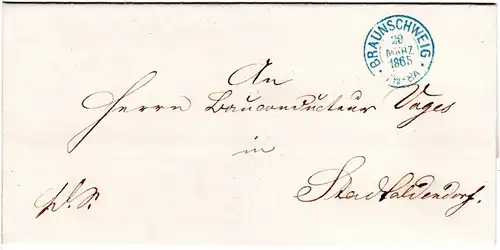 BRAUNSCHWEIG
20
MÄRZ
1865
An
Herrn Bauconducteur Voges
in
Stadtoldendorf.